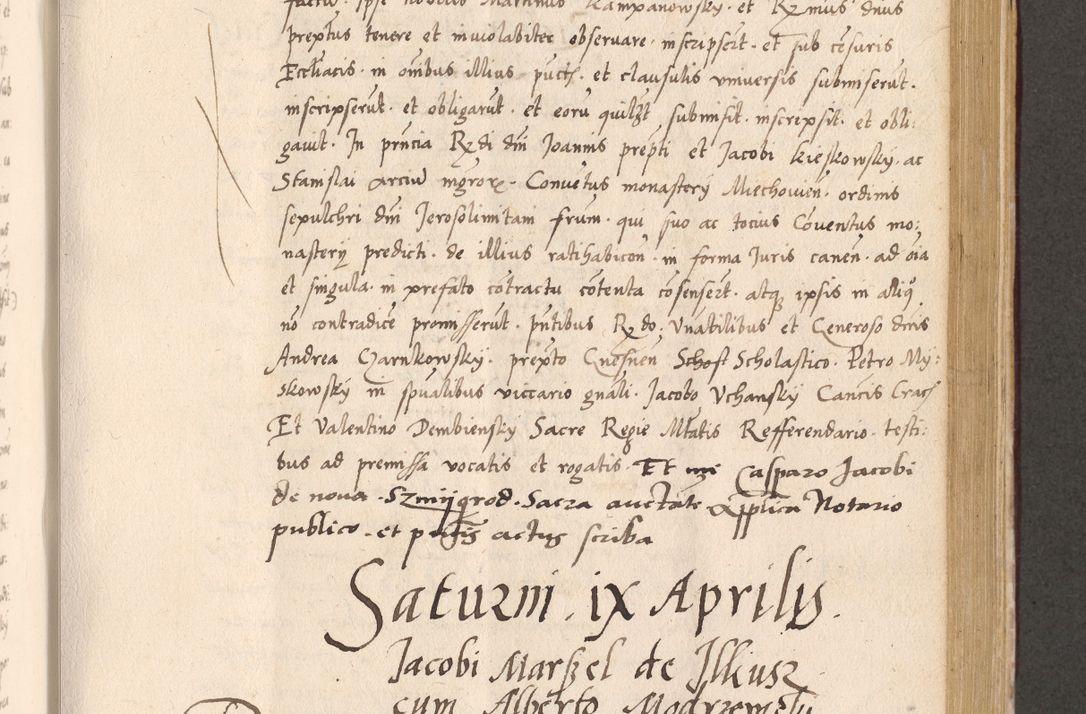 factū. Ipse Nobilis Martinus Kampanowsky. et Rmus dnus
prepťus tenere et inviolabiter observare. inscripsert. et sub cesuris
Eccliacis. in oībus illius puctȷ. et clausulis universis submiserut.
inscripserut. et obligarut. et eoru quilꝫt, submisit. inscrepsit. et obli:
gavit. In prncia Rdi dni Joannis prepti et Jacobi Kieskowsky. ac
Stanislai arciu mgror. Convetus monastery Miechovien. ordinis
sepulchri dni Jerosolimitani frum. qui suo ac tocius Coventus mo:
nastery predicti. de illius ratihabicon. in forma Juris canen. ad oia
et singula. in prefato cōtractu cōtenta cōsensert. atqꝫ ipsis in aliq̊
nō contradice promisserut. pntibus Rdo. Vnatilibus et Generoso dnis
Andrea Czarnkowsky. prepto Gnesnen Schost Scholastico. Petro My:
skowsky in spualibus viccario gnali. Jacobo Vchansky Cancis Crac
Et Valentino Dembiensky Sacre Regie Mtatis Refferendario. testi:
bus ad premissa vocatis et rogatis. Et me Casparo Jacobi
de nova. Szmygrod. Sacra auctate applica Notario
publico. et pntis actus scriba
Saturni. ix Aprilis.
Jacobi Marszel de Ilkusz
cum Alberto Modrzewsky